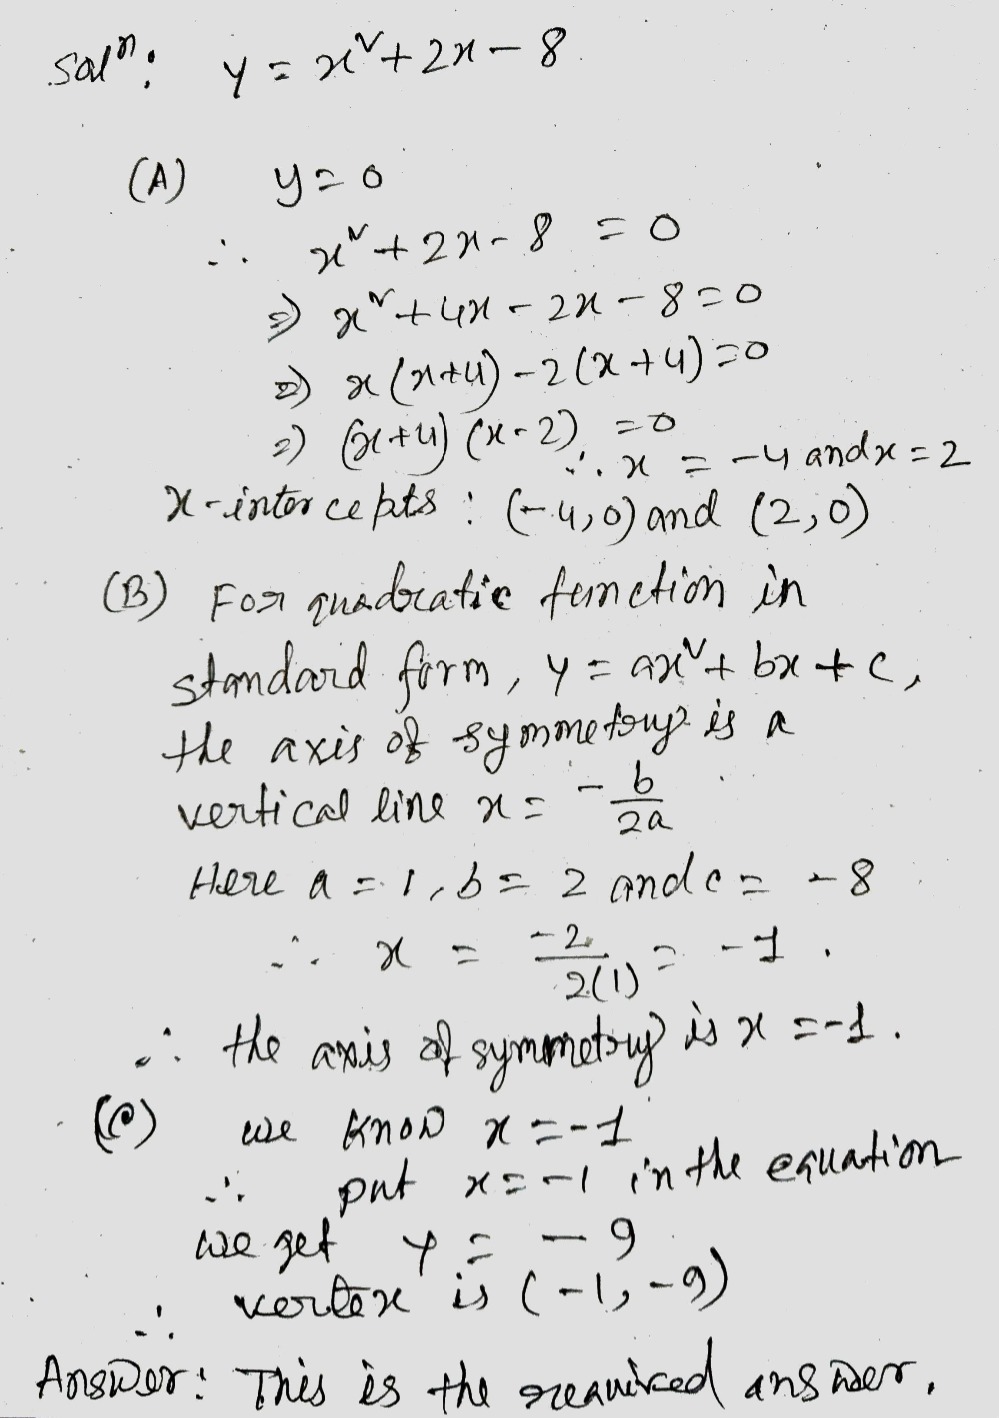 Solⁿ: y = x² + 2x - 8
(A) y = 0
∴ x² + 2x - 8 = 0
⇒ x² + 4x - 2x - 8 = 0
⇒ x(x+4) - 2(x+4) = 0
⇒ (x+4) (x-2) = 0
∴ x = -4 and x = 2
x-intercepts : (-4,0) and (2,0)
(B) For quadratic function in
standard form, y = ax² + bx + c,
the axis of symmetry is a
vertical line x = -b/2a
Here a = 1, b = 2 and c = -8
∴ x = -2/2(1) = -1.
∴ the axis of symmetry is x = -1.
(C) we know x = -1
∴ put x = -1 in the equation
we get y = -9
∴ vertex is (-1, -9)
Answer: This is the required answer.